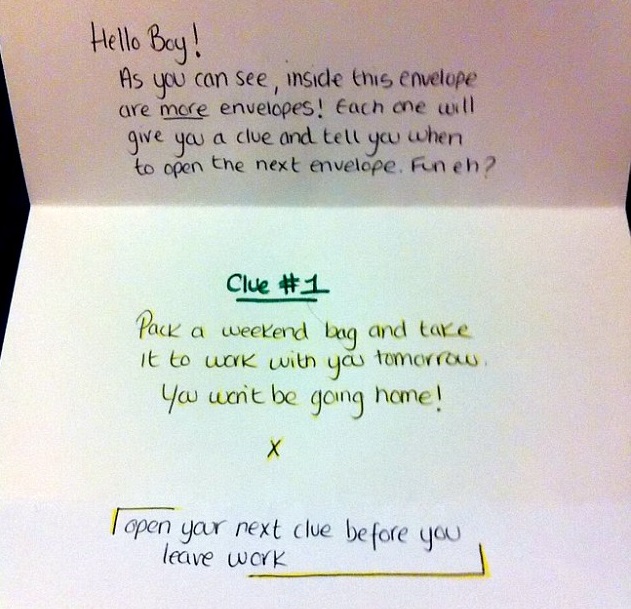 Hello Boy!
As you can see, inside this envelope
are more envelopes! Each one will
give you a clue and tell you when
to open the next envelope. Fun eh?
Clue #1
Pack a weekend bag and take
it to work with you tomorrow.
You won't be going home!
X
open your next clue before you
leave work